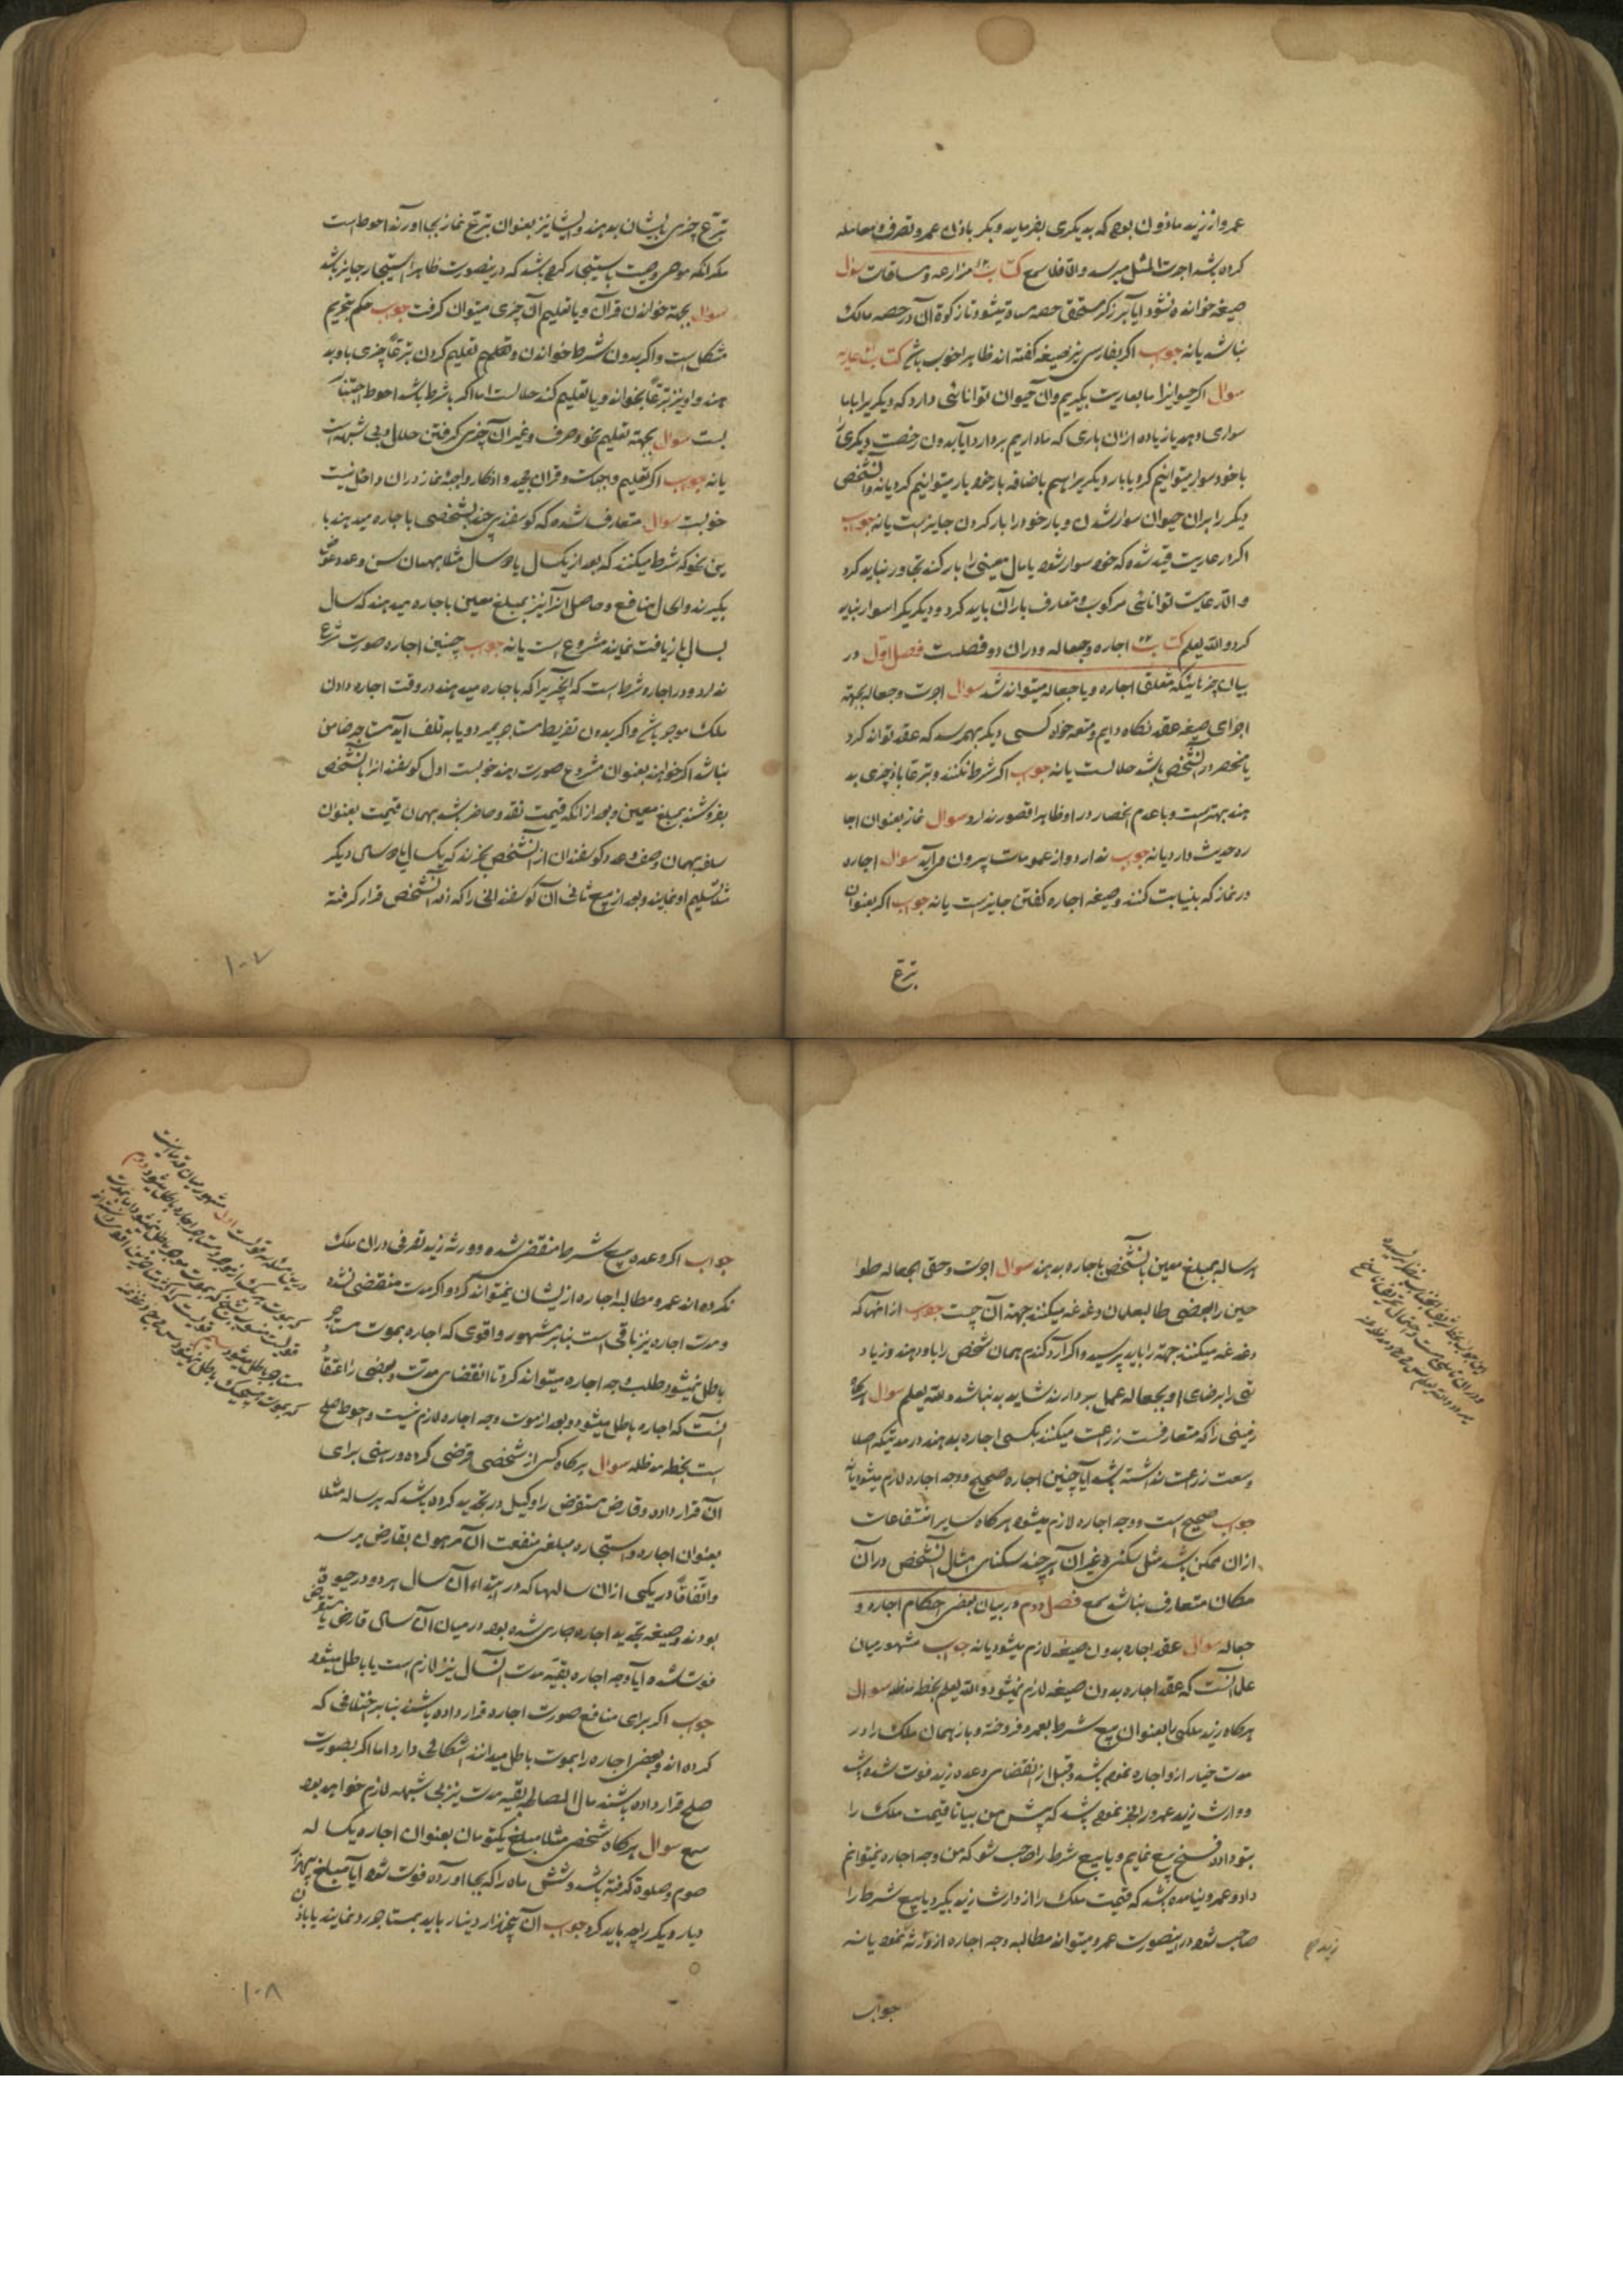 عمرو از زید ماذون بوده که بدیگری بفرماید و بکر باذن عمرو تصرف و معامله
کرده باشد اجرت المثل میرسد و الا فلا سمع کتاب مزارعه و مساقات سؤال
صیغه خوانده نشود آیا برزکر مستحق حصه میشود تا زکوة آن در حصه مالک
نباشد یا نه جواب اگر بفارسی نیز صیغه گفته اند ظاهرا خوب باشد کتاب عاریه
سوال اگر حیوانیرا ما بعاریت بگیریم و آن حیوان توانائی دارد که دیگریرا با ما
سواری دهد یا زیاده از آن باری که ما داریم بردارد آیا بدون رخصت دیگری را
با خود سوار میتوانیم کرد یا بار دیگریرا هم باضافه بار خود بار میتوانیم کرد یا نه و آنشخص
دیگر را بران حیوان سوار شدن و بار خود را بار کردن جایز است یا نه جواب
اگر در عاریت قید شده که خود سوار شود یا مال معینی را بار کند تجاوز نباید کرد
و الا رعایت توانائی مرکوب و متعارف با آن باید کرد و دیگریرا سوار نباید
کرد و الله یعلم کتاب اجاره و جعاله و در ان دو فصلست فصل اول در
بیان چیزهائیکه متعلق اجاره و یا جعاله میتواند شد سوال اجرت و جعاله بجهته
اجرای صیغه عقد نکاح دایم و متعه خواه کسی دیگر بهم رسد که عقد تواند کرد
یا منحصر در آنشخص باشد حلالست یا نه جواب اگر شرط نکنند و تبرعا باو چیزی بد
هند بهتر است و با عدم انحصار در او ظاهرا قصور ندارد سوال نماز بعنوان اجا
ره حدیث دارد یا نه جواب ندارد و از عمومات بیرون میآید سوال اجاره
در نماز که بنیابت کنند و صیغه اجاره گفتن جایز است یا نه جواب اگر بعنوان
تبرع
تبرع چیزی بایشان بدهند و ایشان نیز بعنوان تبرع نماز بجا آورند احوط است
مگر آنکه موصی وصیت باستیجار کرده باشد که درینصورت ظاهرا استیجار جایز باشد
سوال بجهته خواندن قرآن و یا تعلیم آن چیزی میتوان گرفت جواب حکم بتحریم
مشکل است و اگر بدون شرط خواندن و تعلیم تعلیم کردن تبرعا چیزی باو بد
هند و او نیز تبرعا بخواند و یا تعلیم کند حلالست اما اگر با شرط باشد احوط اجتنا
بست سوال بجهته تعلیم نحو و صرف و غیر آن چیزی گرفتن حلال و بی شبهه است
یا نه جواب اگر تعلیم واجبات و قرآن مجید و اذکار واجبه نماز در ان داخل نیست
خوبست سوال متعارف شده که گوسفندی چند بشخصی باجاره میدهند با
ین نحو که شرط میکنند که بعد از یکسال یا دو سال مثلا بهمان سن و عدد عوض
بگیرند و الحال منافع و حاصل آنرا نیز بمبلغ معین باجاره میدهند که سال
بسال بازیافت نمایند مشروع است یا نه جواب چنین اجاره صورت شرع
ندارد و در اجاره شرط است که آنچیزیرا که باجاره میدهند در وقت اجاره دادن
ملک موجر باشد و اگر بدون تفریط مستاجر بمیرد و یا به تلف آید مستاجر ضامن
نباشد اگر خواهند بعنوان مشروع صورت دهند خوبست اول گوسفند انرا بآنشخص
بفروشند بمبلغ معین و بعد از آنکه قیمت نقد و حاضر باشد بهمان قیمت بعنوان
سلف بهمان وصف و عدد گوسفندان از آنشخص بخرند که یکسال یا دو سال دیگر
مثلا تسلیم او نمایند و بعد از بیع ثانی آن گوسفندانی را که از آنشخص قرار گرفته
۱۰۷
هر ساله بمبلغ معین بآنشخص باجاره بدهند سوال اجرت و حق الجعاله طوا
حین را بعضی طالبعلمان دغدغه میکنند جهته آن چیست جواب از آنها که
دغدغه میکنند جهته را باید پرسید و اگر آرد گندم همان شخص را باو دهند و زیاد
تی را برضای او بجعاله عمل بردارند شاید بد نباشد و الله یعلم سوال هرگاه
زمینی را که متعارفست زراعت میکنند بکسی اجاره بدهند در مدتیکه اصلا
وسعت زراعت نداشته باشد آیا چنین اجاره صحیح و وجه اجاره لازم میشود یا نه
جواب صحیح است و وجه اجاره لازم میشود هرگاه سایر انتفاعات
از ان ممکن باشد مثل سکنی و غیر آن هر چند سکنای امثال آنشخص در آن
مکان متعارف نباشد سمع فصل دوم در بیان بعضی احکام اجاره و
جعاله سوال عقد اجاره بدون صیغه لازم میشود یا نه جواب مشهور میان
علما آنست که عقد اجاره بدون صیغه لازم نمیشود و الله یعلم بخط مدظله سوال
هرگاه زید ملکی را بعنوان بیع شرط بعمرو فروخته و باز همان ملک را در
مدت خیار ازو اجاره نموده باشد و قبل از انقضای وعده زید فوت شده باشد
و وارث زید عمرو را خبر نموده باشد که پیش من بیا تا قیمت ملک را
بتو داده فسخ بیع نمایم و یا بیع شرط را صاحب شو که من وجه اجاره نمیتوانم
داد و عمرو نیامده باشد که قیمت ملک را از وارث زید بگیرد یا بیع شرط را
صاحب شود در اینصورت عمرو میتواند مطالبه وجه اجاره از ورثه نمود یا نه
زید
جواب
جواب اگر وعده بیع شرط منقضی شده و ورثه زید تصرفی در ان ملک
نکرده اند عمرو مطالبه اجاره ازیشان نمیتواند کرد و اگر مدت منقضی نشده
و مدت اجاره نیز باقی است بنا بر مشهور و اقوی که اجاره بموت مستاجر
باطل نمیشود طلب وجه اجاره میتواند کرد تا انقضای مدت و بعضی را اعتقاد
آنست که اجاره باطل میشود و بعد از موت وجه اجاره لازم نیست و احوط صلح
است بخط مدظله سوال هرگاه کسی از شخصی قرضی کرده و رهنی برای
آن قرار داده و قارض مستقرض را وکیل در تجدید کرده باشد که هر ساله مثلا
بعنوان اجاره و استیجار مبلغی منفعت آن مرهون بقارض برسد
و اتفاقا در یکی از ان سالها که در ابتداء آن سال هر دو در حیوة
بودند و صیغه تجدید اجاره جاری شده بود در میان آن سال قارض یا مستقرض
فوت شده آیا وجه اجاره بقیه مدت آنسال نیز لازم است یا باطل میشود
جواب اگر برای منافع صورت اجاره قرار داده باشند بنا بر اختلافی که
کرده اند و بعضی اجاره را بموت باطل میدانند اشکالی دارد اما اگر بصورت
صلح قرار داده باشند مال المصالحه بقیه مدت نیز بی شبهه لازم خواهد بود
سمع سوال هرگاه شخصی مثلا مبلغ یکتومان بعنوان اجاره یکساله
صوم و صلوة گرفته باشد و شش ماه را که بجا آورده فوت شود آیا مبلغ پنجهزار
دینار دیگر را چه باید کرد جواب آن پنجهزار دینار باید بمستاجر رد نمایند یا باذن
۱۰۸